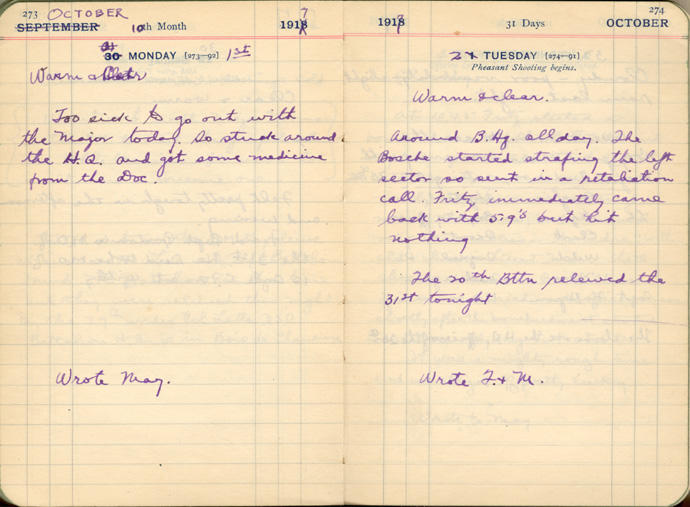 273 OCTOBER
SEPTEMBER 10th Month 1918 7
30 MONDAY [273—92] 1st
Warm & Clear
Too sick to go out with
the Major today. So stuck around
the H.Q. and got some medicine
from the Doc.
Wrote May.
274
1918 7 31 Days OCTOBER
2 TUESDAY [274—91]
Pheasant Shooting begins.
Warm & clear.
Around B.Hq. all day. The
Bosche started strafing the left
sector so sent in a retaliation
call. Fritz immediately came
back with 5.9's but hit
nothing
The 20th Bttn relieved the
31st tonight
Wrote F. & M.